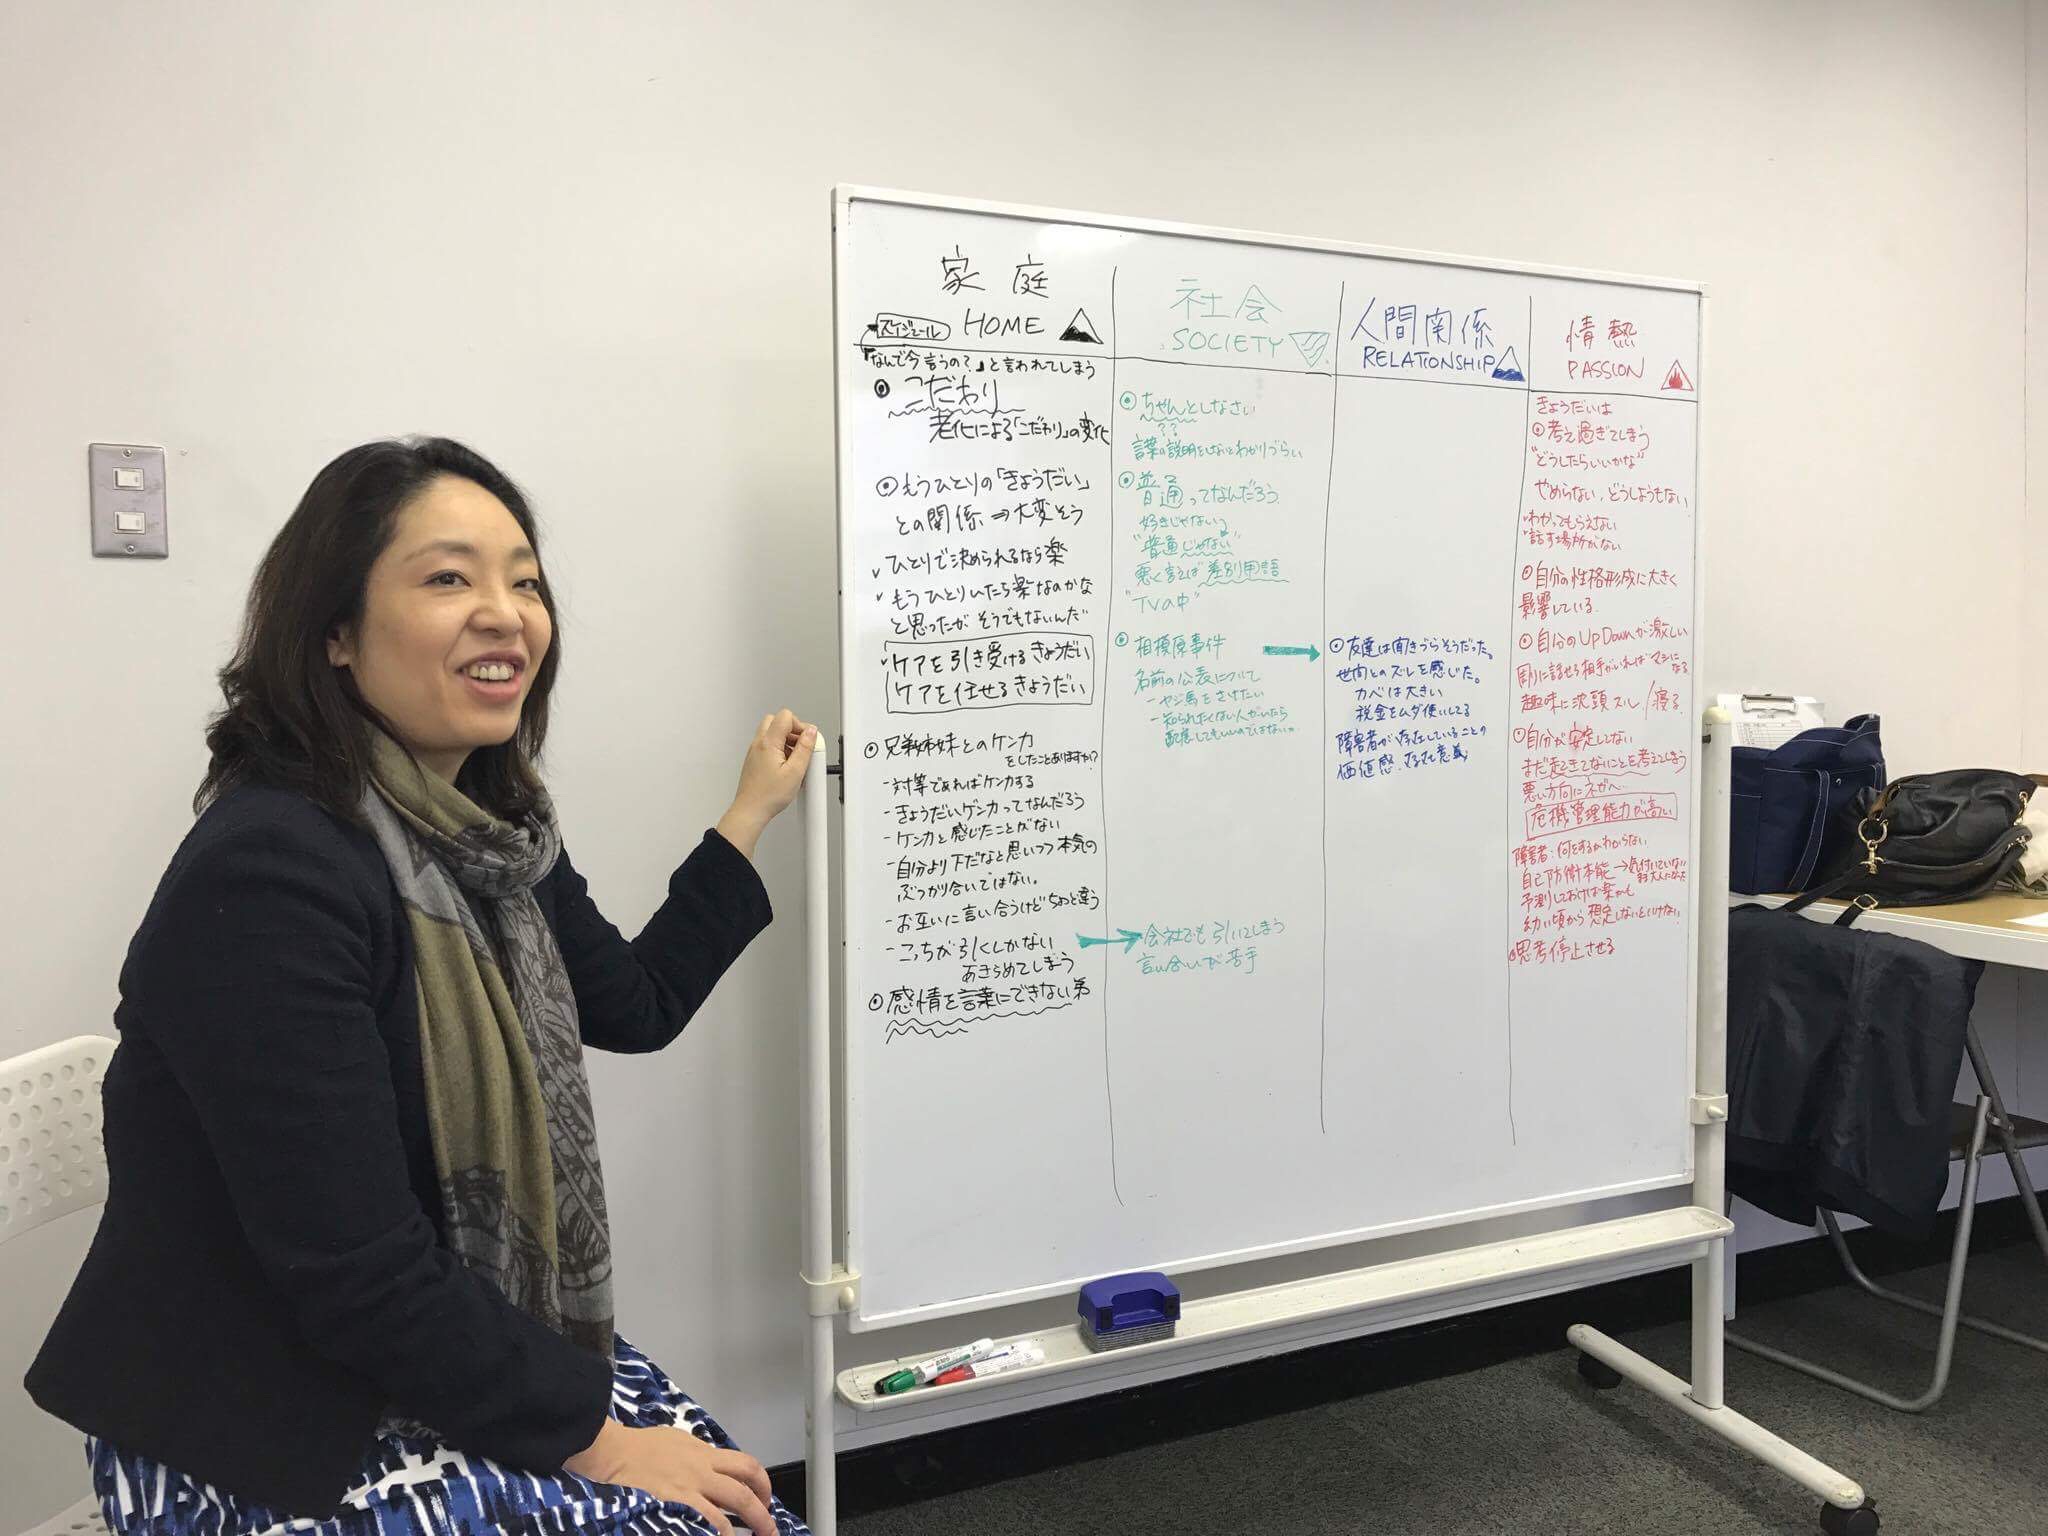 家庭
スケジュール HOME
「なんで今言うの？」と言われてしまう
◉ こだわり
老化による「こだわり」の変化
◉ もうひとりの「きょうだい」
との関係 ⇒ 大変そう
✓ ひとりで決められるなら楽
✓ もうひとりいたら楽なのかな
と思ったが そうでもないんだ
✓ ケアを引き受けるきょうだい
ケアを任せるきょうだい
◉ 兄弟姉妹とのケンカ
をしたことありますか？
- 対等であればケンカする
- きょうだいゲンカってなんだろう
- ケンカと感じたことがない
- 自分より下だなと思いつつ 本気の
ぶつかり合いではない。
- お互いに言い合うけど ちょっと違う
- こっちが引くしかない
あきらめてしまう
◉ 感情を言葉にできない弟
社会
SOCIETY
◉ ちゃんとしなさい
??
説明をしないとわかりづらい
◉ 普通ってなんだろう
好きじゃない
"普通じゃない"
悪く言えば 差別用語
"TVの中"
◉ 相模原事件 →
名前の公表について
- ヤジ馬をさけたい
- 知られたくない人がいたら
配慮してもいいのではないか
→ 会社でも引いてしまう
言い合いが苦手
人間関係
RELATIONSHIP
◉ 友達は聞きづらそうだった。
世間とのズレを感じた。
カベは大きい
税金をムダ使いしてる
障害者が存在していることの
価値感、意義
情熱
PASSION
きょうだいは
◉ 考え過ぎてしまう
"どうしたらいいかな"
やめらない、どうしようもない
わかってもらえない
話す場所がない
◉ 自分の性格形成に大きく
影響している
◉ 自分のUp Downが激しい
周りに話せる相手がいればマシになる
趣味に没頭スル／寝る
◉ 自分が安定してない
まだ起きてないことを考えてしまう
悪い方向にネガへ…
危機管理能力が高い
障害者：何をするかわからない
自己防衛本能 → 気付いていない
予測しておけば楽かも
幼い頃から想定しないといけない
◉ 思考停止させる